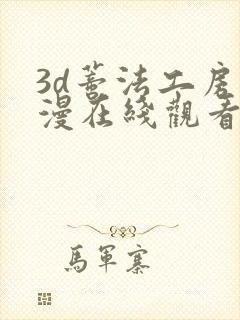 3d蕃法工房
漫在綫觀看
馬軍寨